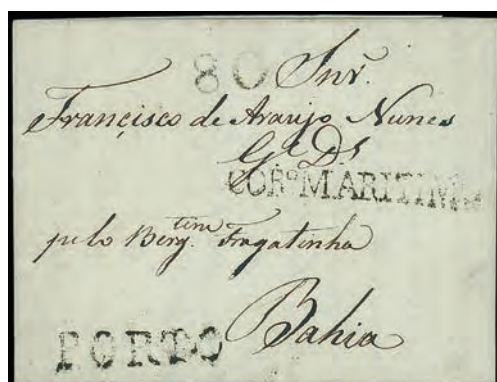 80 Snr.
Francisco de Araujo Nunes
Ge Ds
COR⁰ MARITIMO
pelo Bergtim Fragatinha
Bahia
PORTO